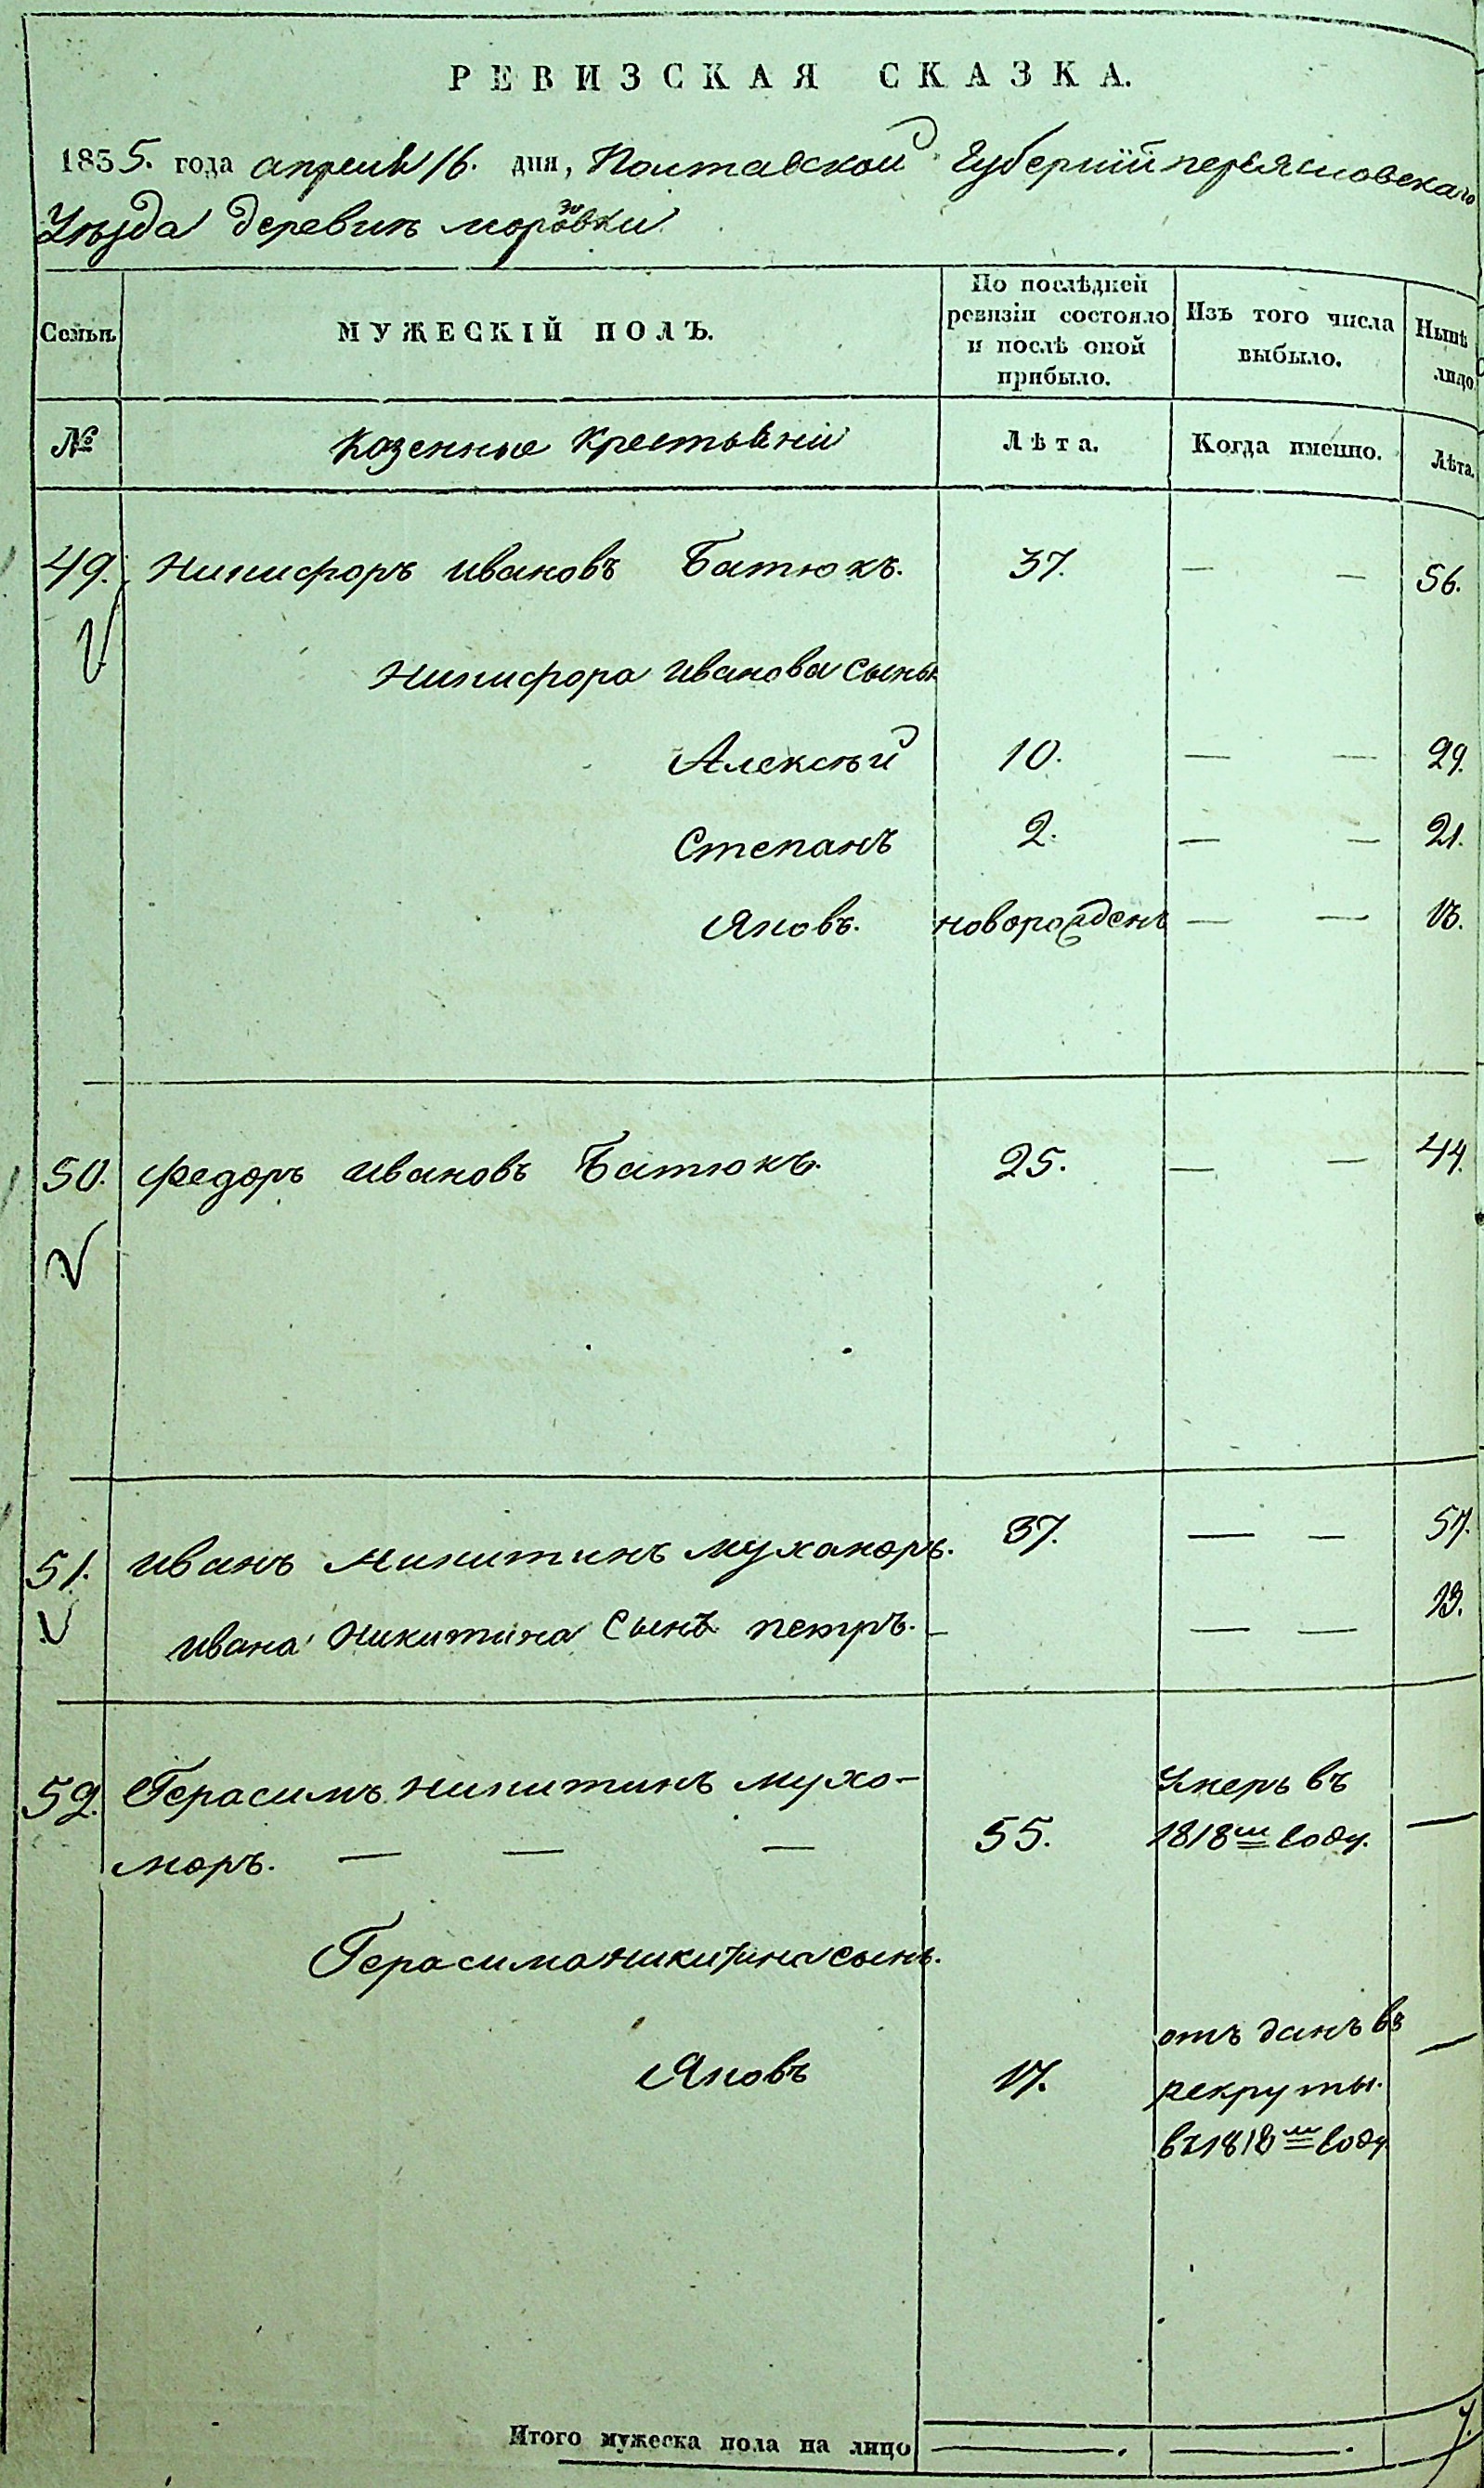 РЕВИЗСКАЯ СКАЗКА.
1835. года апреля 16. дня, Полтавской Губернїй переяиовскаго
Уѣзда деревнѣ морозовки
Семьи. МУЖЕСКІЙ ПОЛЪ. По послѣдней ревизіи состояло и послѣ оной прибыло. Изъ того числа выбыло. Нынѣ лицо.
№ Казенные Крестьяни Лѣта. Когда именно. Лѣта.
49. Никифоръ ивановъ Батюкъ. 37. — — 56.
Никифора иванова сыны
Алексѣй 10. — — 29.
Степанъ 2. — — 21.
Яковъ. новорожденъ — — 18.
50. Федоръ ивановъ Батюкъ. 25. — — 44.
51. иванъ Никитинъ мухоморъ. 37. — — 57.
ивана Никитина Сынъ петръ. — — — 13.
52. Герасимъ никитинъ мухо-
моръ. — — — 55. Умеръ въ 1818м году. —
Герасима никитина сынъ.
Яковъ 17. отъ данъ въ рекруты. въ 1818м году —
Итого мужеска пола на лицо — . — . 7.